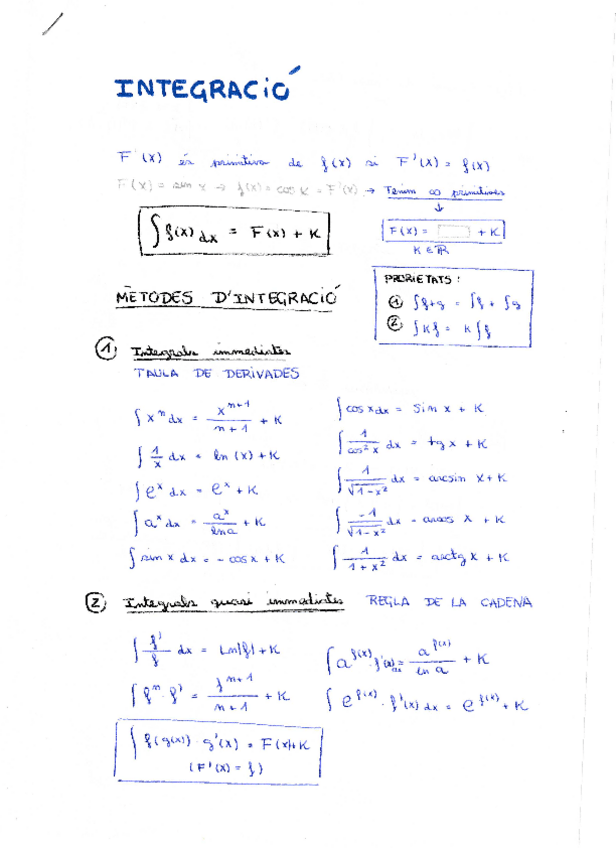 INTEGRACIÓ
F(x) és primitiva de f(x) si F'(x) = f(x)
F(x) = sin x → f(x) = cos x = F'(x) → Tenim ∞ primitives
↓
∫ f(x) dx = F(x) + K
F(x) = + K
K ∈ ℝ
PROPIETATS:
① ∫f+g = ∫f + ∫g
② ∫Kf = K∫f
MÈTODES D'INTEGRACIÓ
① Integrals immediates
TAULA DE DERIVADES
∫ xⁿ dx = xⁿ⁺¹/(n+1) + K
∫ 1/x dx = ln (x) + K
∫ eˣ dx = eˣ + K
∫ aˣ dx = aˣ/ln a + K
∫ sin x dx = - cos x + K
∫ cos x dx = sin x + K
∫ 1/cos² x dx = tg x + K
∫ 1/√(1-x²) dx = arcsin x + K
∫ -1/√(1-x²) dx = arcos x + K
∫ 1/(1+x²) dx = arctg x + K
② Integrals quasi immediates REGLA DE LA CADENA
∫ f'/f dx = Ln|f| + K
∫ fⁿ · f' = fⁿ⁺¹/(n+1) + K
∫ a^f(x) · f'(x) dx = a^f(x)/ln a + K
∫ e^f(x) · f'(x) dx = e^f(x) + K
∫ f(g(x)) · g'(x) = F(x) + K
(F'(x) = f)